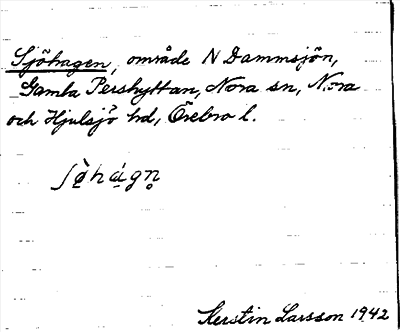 Sjöhagen, område N Dammsjön,
Gamla Pershyttan, Nora sn, Nora
och Hjulsjö hd, Örebro l.
Kerstin Larsson 1942